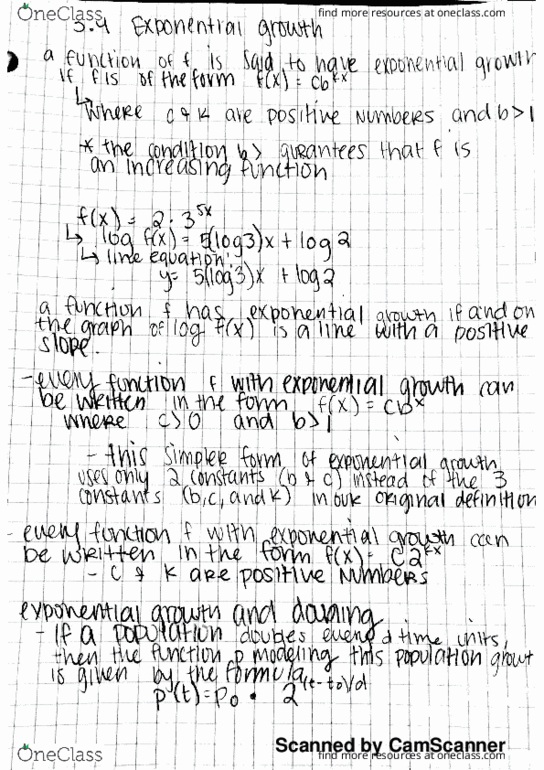 OneClass
find more resources at oneclass.com
3.4 Exponential growth
a function of f is said to have exponential growth
if f is of the form f(x) = cb^kx
↳ where c & k are positive numbers and b>1
* the condition b> gurantees that f is
an increasing function
f(x) = 2·3^5x
↳ log f(x) = 5(log3)x + log2
↳ line equation:
y= 5(log3)x + log2
a function f has exponential growth if and on
the graph of log f(x) is a line with a positive
slope.
- every function f with exponential growth can
be written in the form f(x) = cb^x
where c>0 and b>1
- this simpler form of exponential growth
uses only 2 constants (b & c) instead of the 3
constants (b,c, and k) in our original definition
- every function f with exponential growth can
be written in the form f(x) = C2^kx
- c & k are positive numbers
exponential growth and
- If a population doubles every d time units,
then the function p modeling this population growt
is given by the formula
p(t) = p₀ · 2^(t-to)/d
Scanned by CamScanner
OneClass
find more resources at oneclass.com